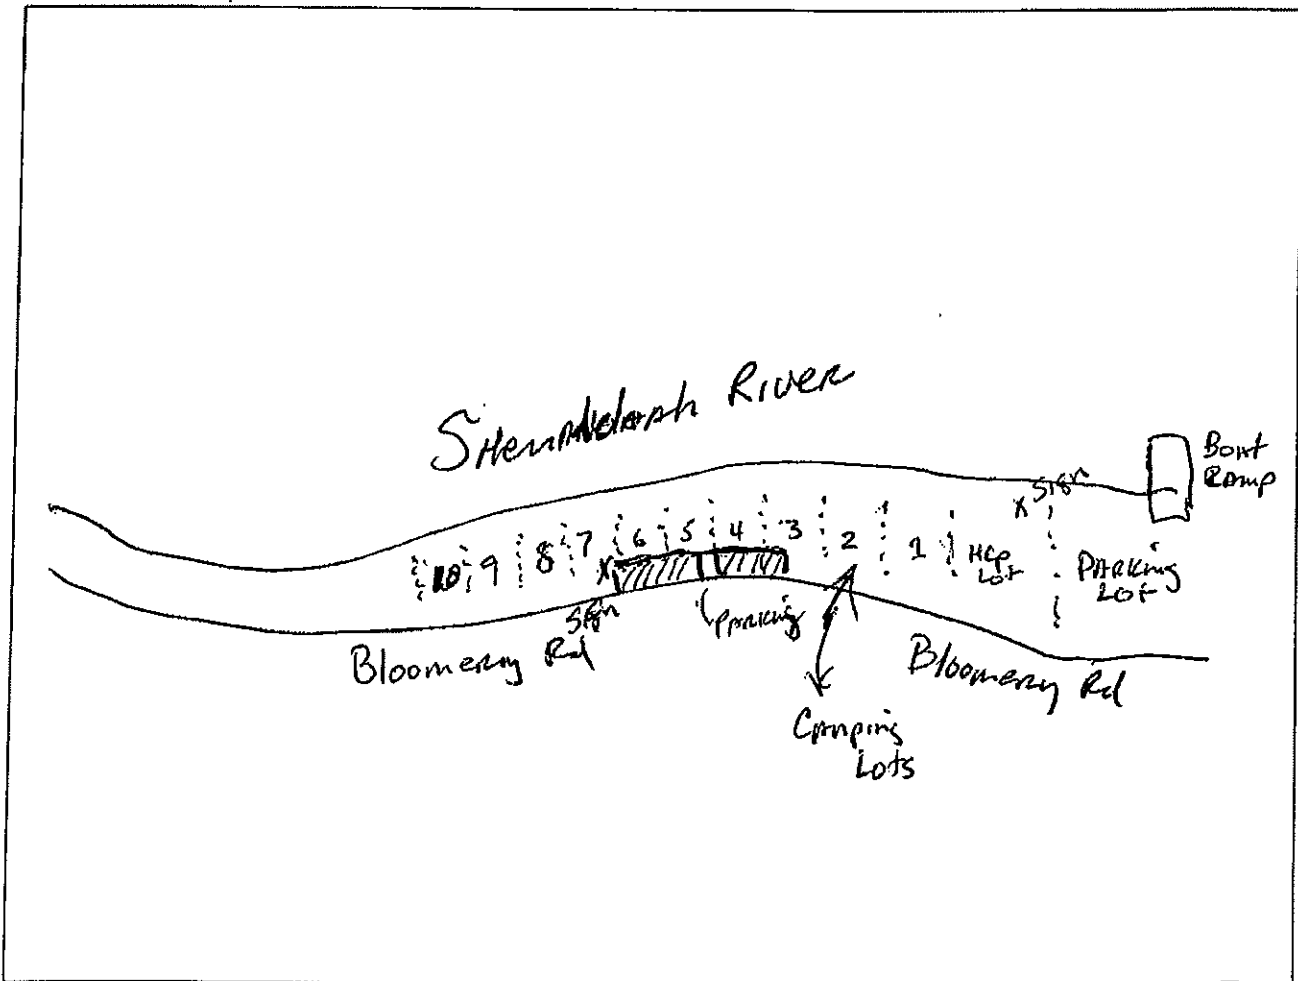 Shenandoah River
Boat
Ramp
X Sign
10 9 8 7 6 5 4 3 2 1 HCP
Lot
Parking
Lot
X
Sign
(Parking
Bloomery Rd
Bloomery Rd
Camping
Lots